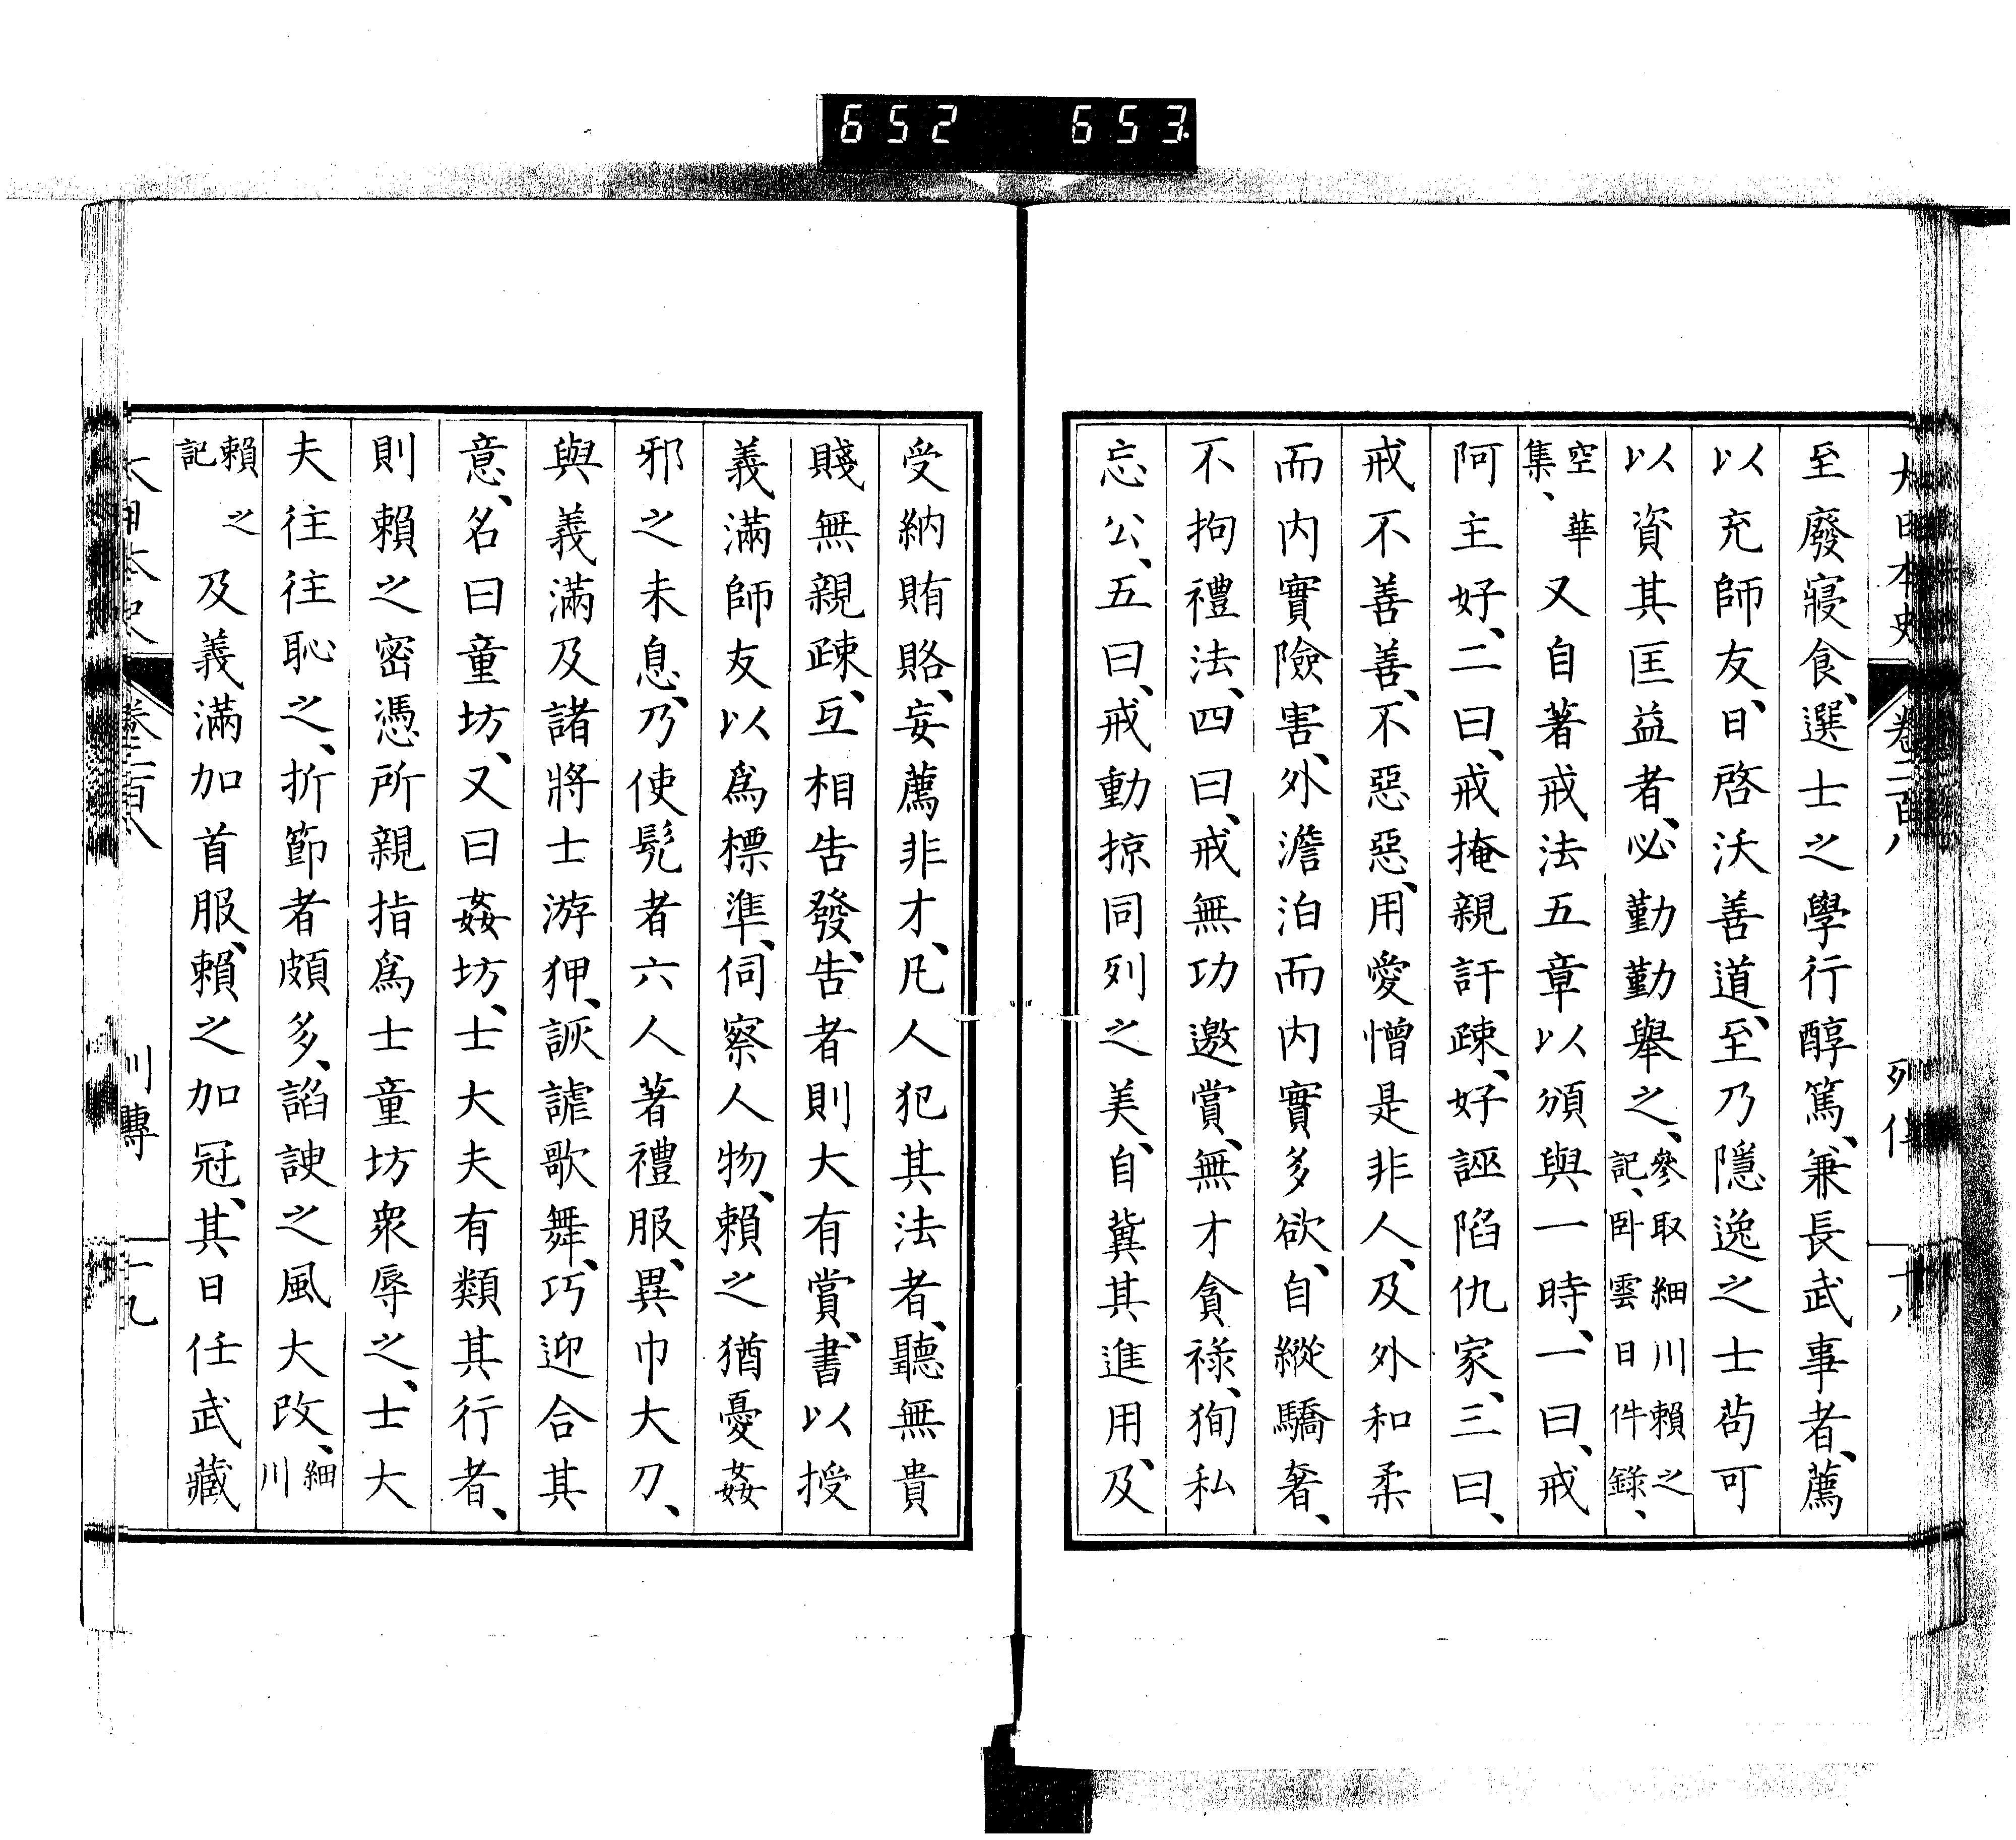 652 653
大日本史 卷二百八 列傳 十八
至廢寢食、選士之學行醇篤、兼長武事者、薦
以充師友、日啓沃善道、至乃隱逸之士苟可
以資其匡益者、必勤勤舉之、參取細川賴之記、臥雲日件錄、
空華集、又自著戒法五章以頒與一時、一曰、戒
阿主好、二曰、戒掩親訐疎、好誣陷仇家、三曰、
戒不善善、不惡惡、用愛憎是非人、及外和柔
而内實險害、外澹泊而内實多欲、自縱驕奢、
不拘禮法、四曰、戒無功邀賞、無才貪祿、狥私
忘公、五曰、戒動掠同列之美、自冀其進用、及
受納賄賂、妄薦非才、凡人犯其法者、聽無貴
賤無親疎、互相告發、告者則大有賞、書以授
義滿師友以爲標準、伺察人物、賴之猶憂姦
邪之未息、乃使髡者六人著禮服、異巾大刀、
與義滿及諸將士游狎、詼謔歌舞、巧迎合其
意、名曰童坊、又曰姦坊、士大夫有類其行者、
則賴之密憑所親指爲士童坊衆辱之、士大
夫往往恥之、折節者頗多、諂諛之風大改、細川
賴之記 及義滿加首服、賴之加冠、其日任武藏
大日本史 卷二百八 列傳 十九